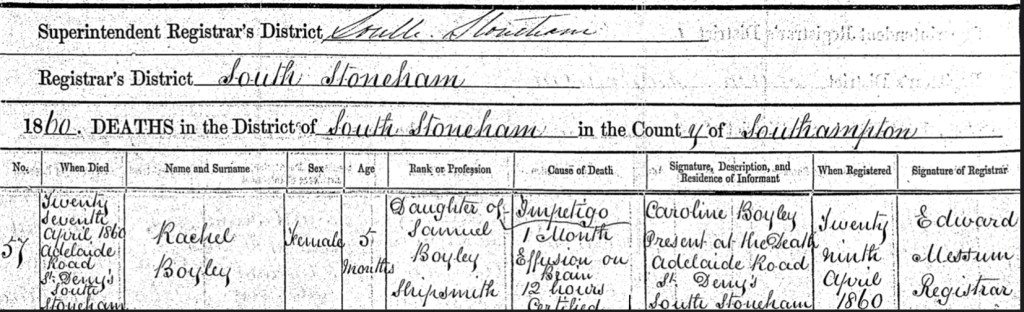 Superintendent Registrar's District South Stoneham
Registrar's District South Stoneham
1860. DEATHS in the District of South Stoneham in the County of Southampton
No. When Died Name and Surname Sex Age Rank or Profession Cause of Death Signature, Description, and Residence of Informant When Registered Signature of Registrar
57
Twenty
Seventh
April 1860
Adelaide
Road
St. Deny's
South
Stoneham
Rachel
Boyley
Female
5
months
Daughter of
Samuel
Boyley
Shipsmith
Impetigo
1 Month
Effusion on
Brain
12 hours
Certified
Caroline Boyley
Present at the Death
Adelaide Road
St. Deny's
South Stoneham
Twenty
ninth
April
1860
Edward
Registrar